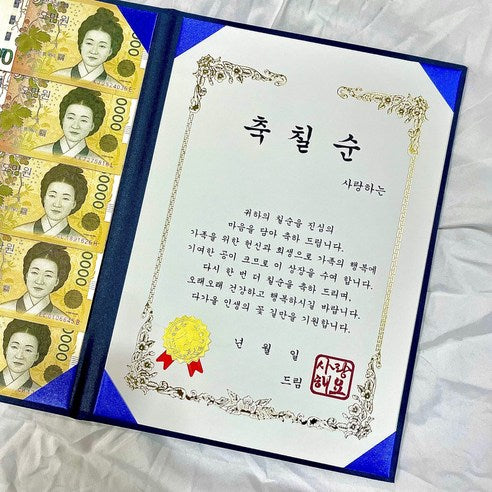 축 칠 순
사랑하는
귀하의 칠순을 진심의
마음을 담아 축하 드립니다.
가족을 위한 헌신과 희생으로 가족의 행복에
기여한 공이 크므로 이 상장을 수여 합니다.
다시 한 번 더 칠순을 축하 드리며,
오래오래 건강하고 행복하시길 바랍니다.
다가올 인생의 꽃 길만을 기원합니다.
년 월 일
드림
사랑
해요